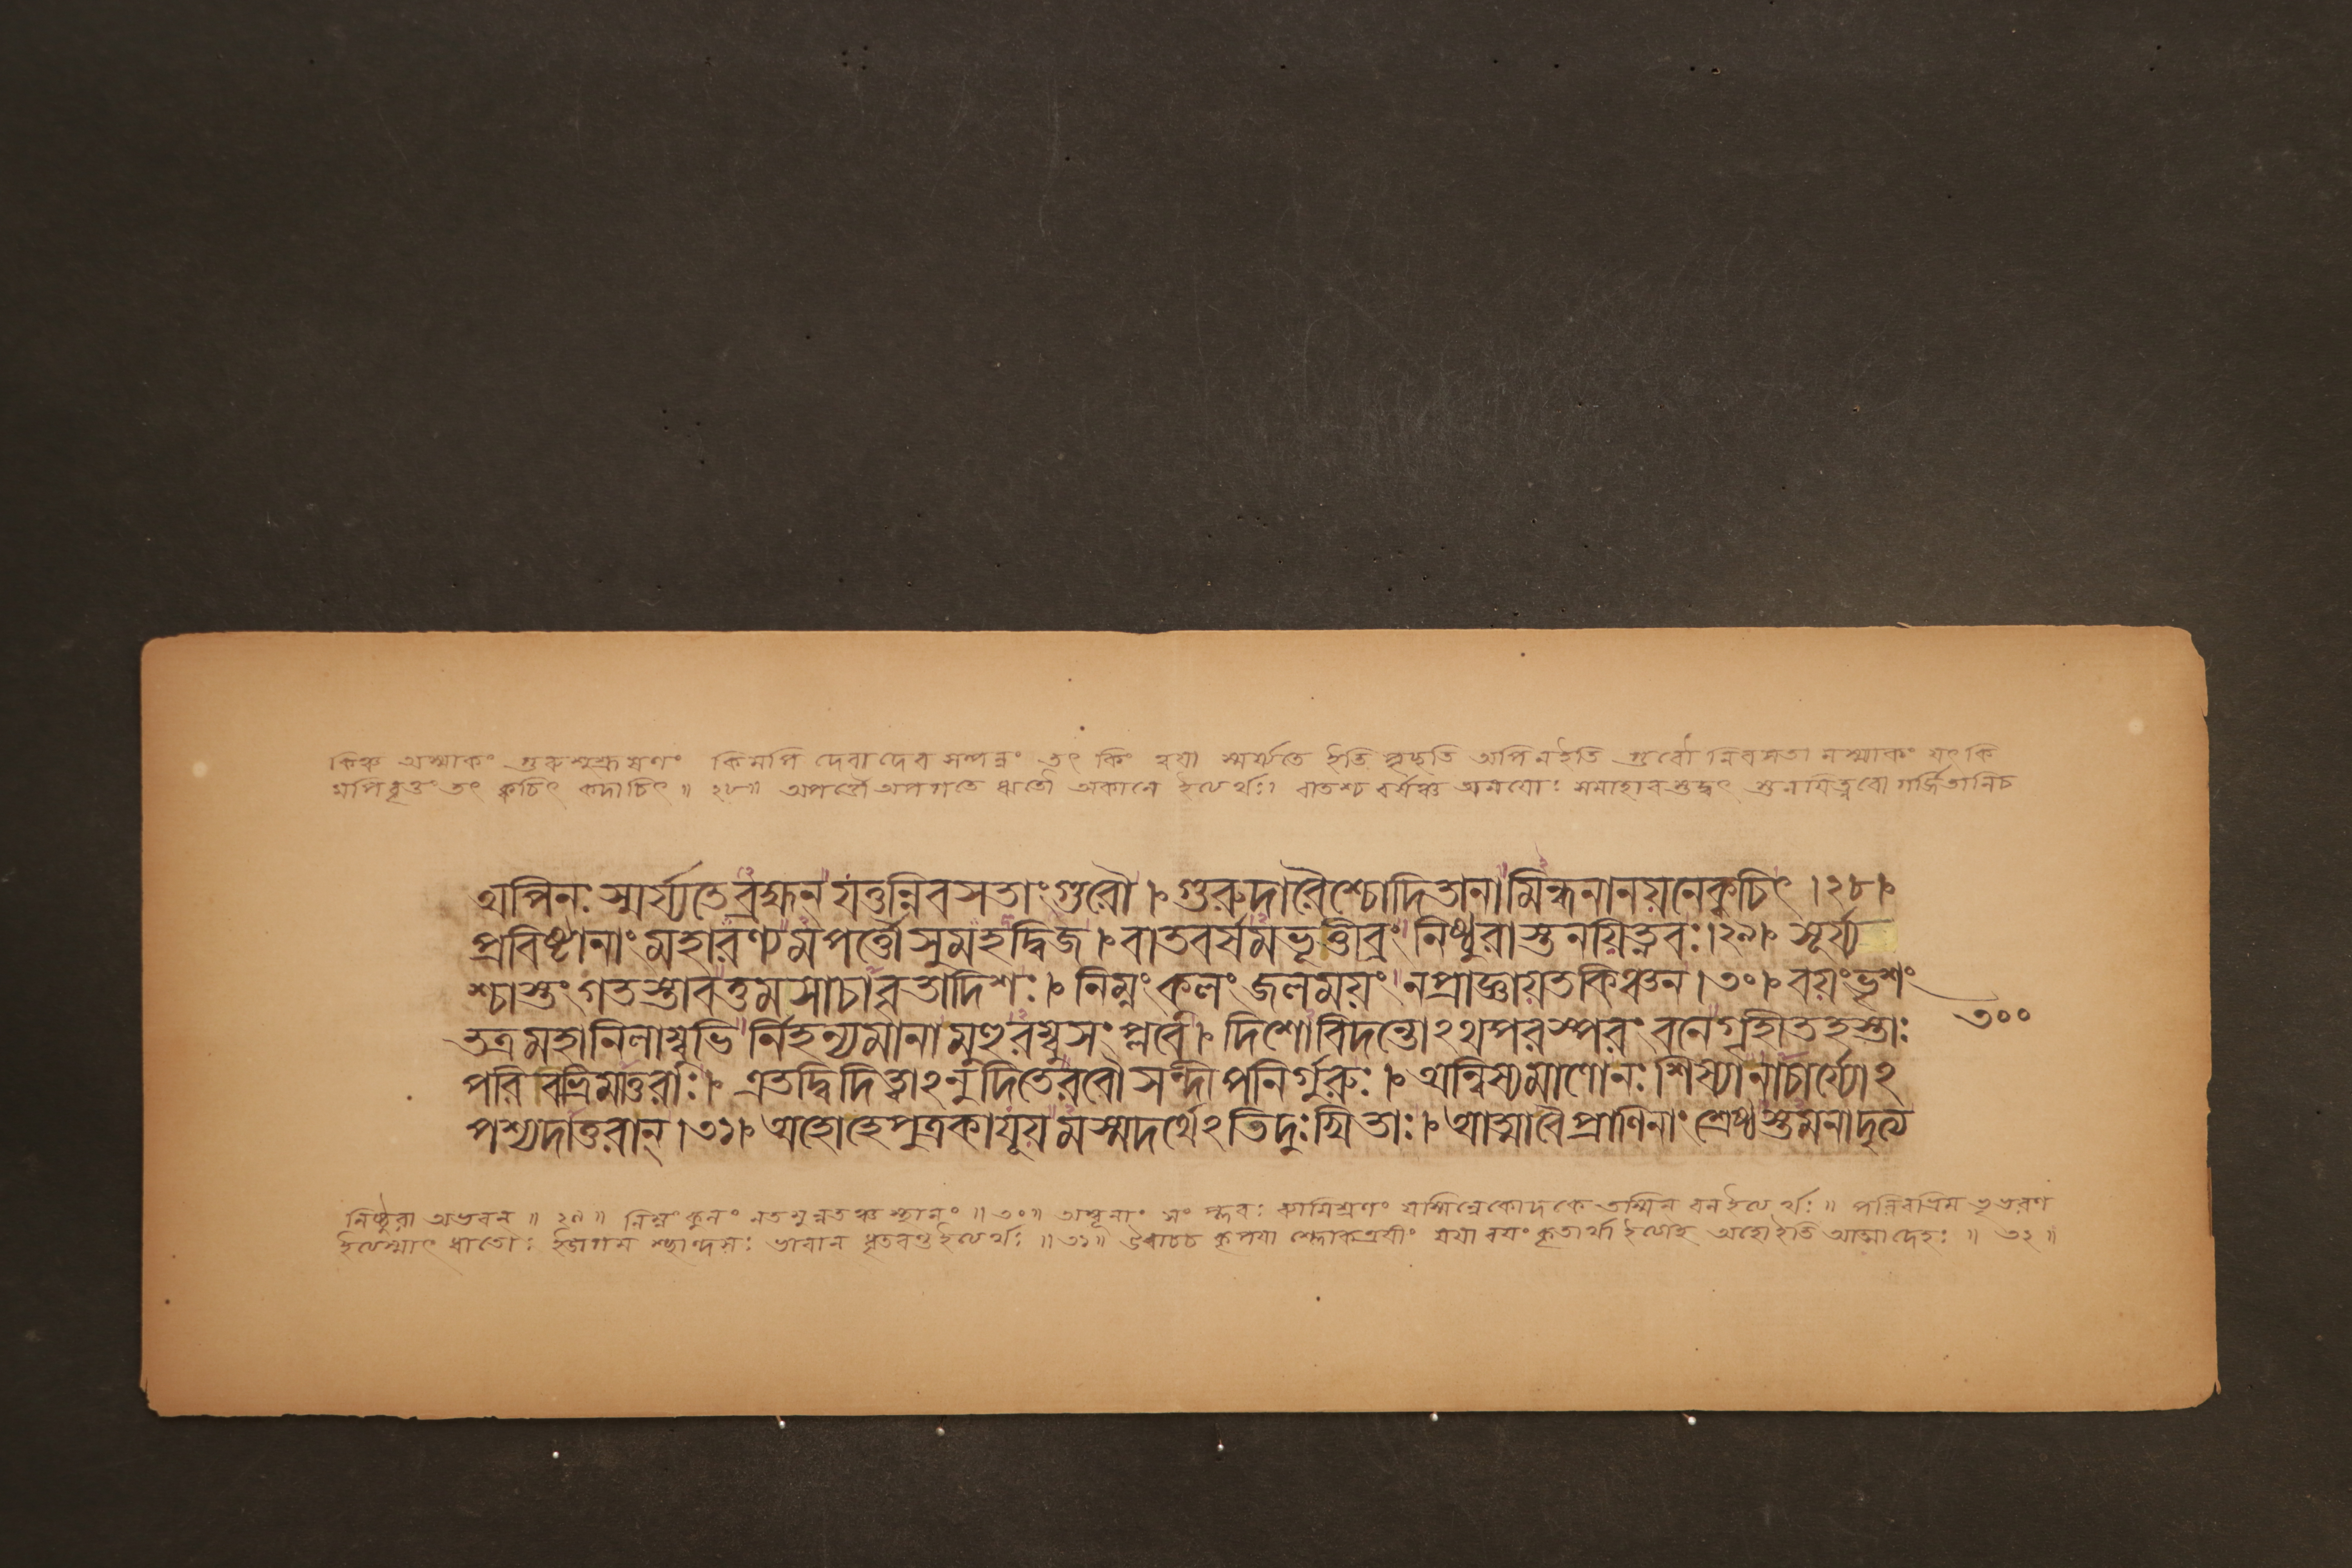 কিঞ্চ অস্মাকং গুরুশুশ্রূষণং কিমপি দেবাদেব সম্পন্নং তৎ কিং ত্বয়া স্মর্য্যতে ইতি পৃচ্ছতি অপি ন ইতি গুরৌ নিবসতা মস্মাকং যৎ কি
মপি বৃত্তং তৎ ক্বচিৎ কদাচিৎ ॥ ২৮॥ অপর্ত্তৌ অপগতে ঋতৌ অকালে ইত্যর্থঃ। বাতশ্চ বর্ষঞ্চ অনয়োঃ সমাহার গর্জ্জিতানিচ
অপিনঃ স্মর্য্যতেব্রহ্মন্ যত্তন্নিবসতাংগুরৌ ।৹ গুরুদারৈশ্চোদিতানামিন্ধনানয়নেক্বচিৎ ।২৮।৹
প্রবিষ্টানাং মহারণ্যমপর্ত্তৌসুমহদ্দ্বিজ ।৹ বাতবর্ষমভূত্তীব্রং নিষ্ঠুরাস্তনয়িত্নবঃ।২৯।৹ সূর্য্য
শ্চাস্তং গতস্তাবত্তমসাচাবৃতাদিশঃ।৹ নিম্নংকূলং জলময়ং নপ্রাজ্ঞায়তকিঞ্চন।৩০।৹ বয়ংভৃশং
তত্রমহানিলাম্বুভি র্নিহন্যমানা মুহুরম্বুসংপ্লবে।৹ দিশোবিদন্তোঽথপরস্পরং বনেগৃহীতহস্তাঃ
৩০০
পরিবভ্রিমাতুরাঃ।৹ এতদ্বিদিত্বাঽনুদিতেরবৌ সন্দীপনির্গুরুঃ।৹ অন্বিষ্যমাণোনঃ শিষ্যানাচার্য্যোঽ
পশ্যদাতুরান্ ।৩১।৹ অহোহেপুত্রকাযূয়মস্মদর্থেঽতিদুঃখিতাঃ।৹ আত্মাবৈপ্রাণিনাং শ্রেষ্ঠস্তমনাদৃত্য
নিষ্ঠুরা অভবন্ ॥ ২৯॥ নিম্নং কূলং নতমুন্নতঞ্চ স্থানং ॥৩০॥ অম্বূনাং সংপ্লবঃ যস্মিন্নেকোদকে তস্মিন বনইত্যর্থঃ॥ পরিবভ্রিম ভৃভরণ
ইত্যস্মাৎ ধাতোঃ ভারান ধৃতবন্তইত্যর্থঃ ॥৩১॥ উবাচচ কৃপয়া যথা বয়ং কৃতার্থা ইত্যাহ অহোইতি আত্মাদেহঃ ॥ ৩২॥